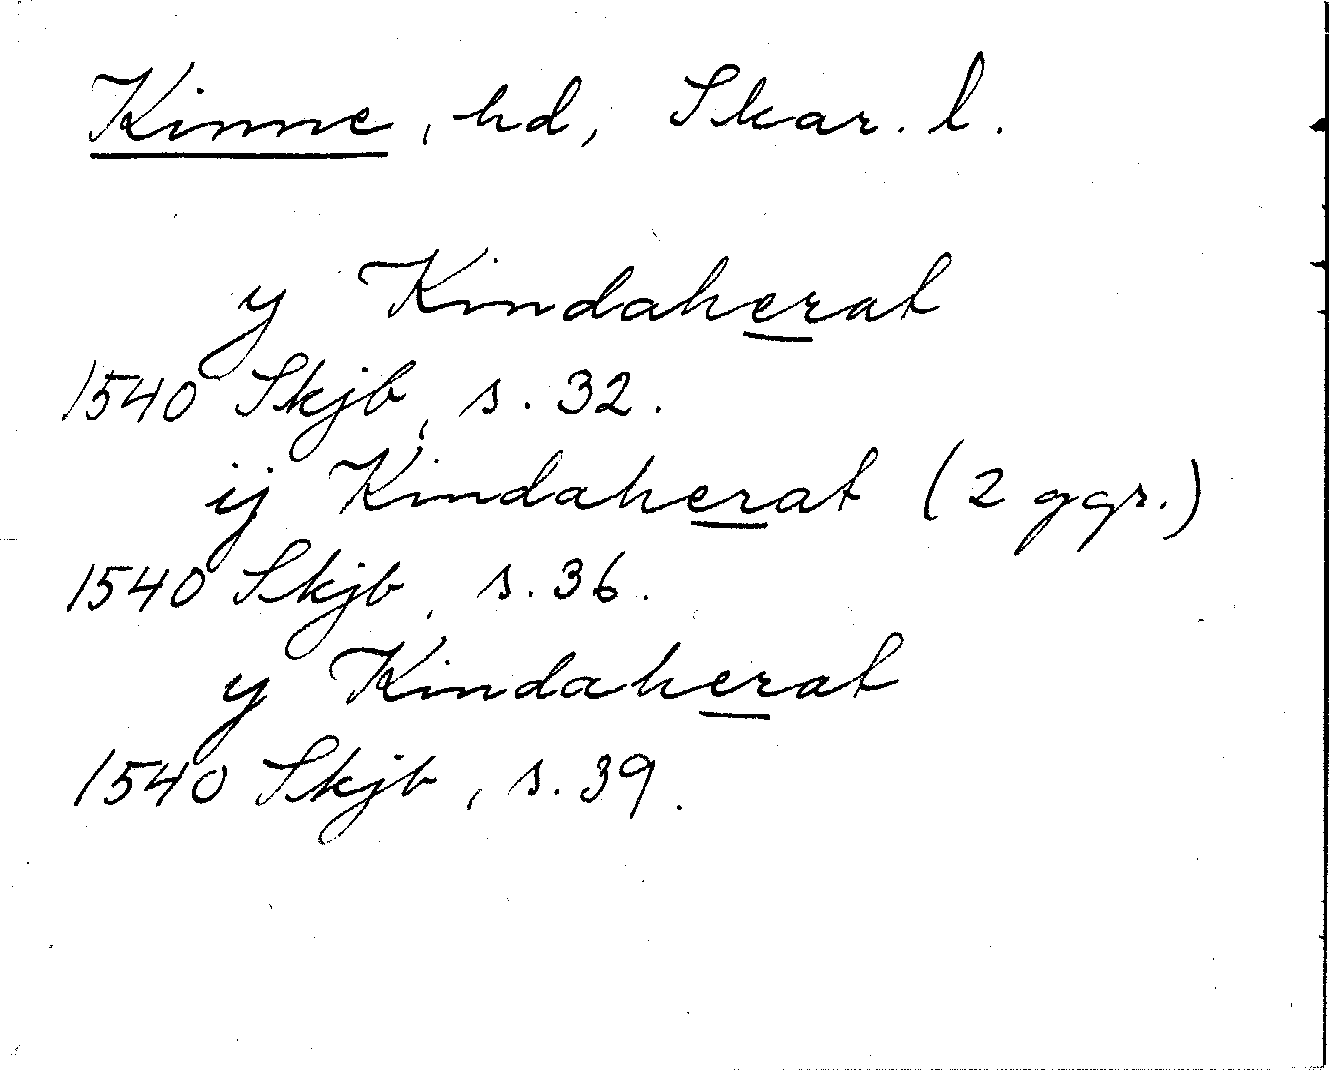 Kinne, hd, Skar. l.
y Kindaherat
1540 Skjb, s. 32.
ij Kindaherat (2 ggr.)
1540 Skjb, s. 36.
y Kindaherat
1540 Skjb, s. 39.